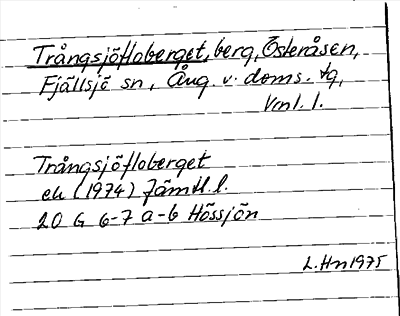 Trångsjöfloberget, berg, Österåsen,
Fjällsjö sn, Ång. v. doms. tg,
Vnl. l.
Trångsjöfloberget
ek (1974) Jämtl. l.
20 G 6-7 a-b Hössjön
L. Hn 1975